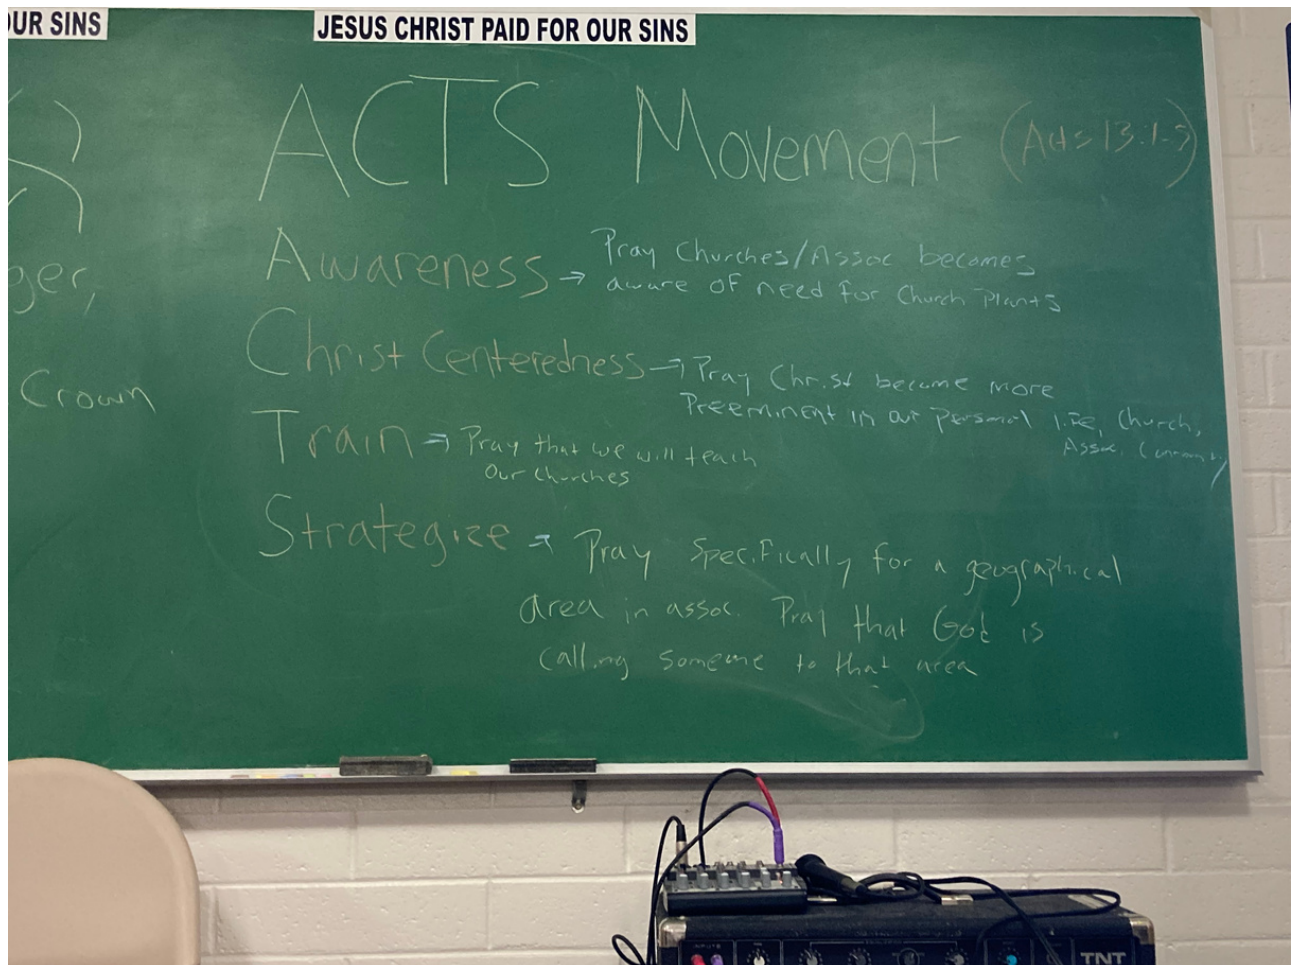 OUR SINS
JESUS CHRIST PAID FOR OUR SINS
ACTS Movement (Acts 13:1-3)
Awareness → Pray Churches/Assoc becomes
aware of need for Church Plants
ger,
Christ Centeredness → Pray Christ become more
Preeminent in our Personal life, Church,
Assoc, Community
Crown
Train → Pray that we will teach
our churches
Strategize → Pray Specifically for a geographical
area in assoc. Pray that God is
calling someone to that area
TNT